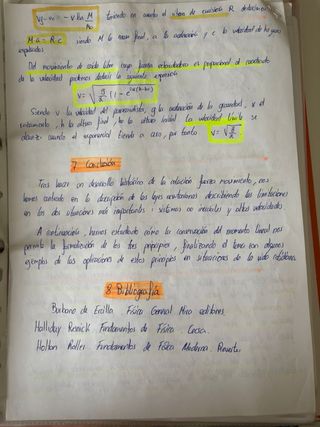 Vf - v₀ = -v ln M/M₀ teniendo en cuenta el
M·a = R·c siendo M la masa final, a la aceleración y c la velocidad de los gases
expulsados.
Del movimiento de caída libre cuya fuerza retardadora es proporcional al cuadrado
de la velocidad podemos deducir la siguiente expresión
Siendo v la velocidad del paracaidista, g la aceleración de la gravedad, k el
rozamiento, h la altura final, h₀ la altura inicial. La velocidad límite se
alcanza cuando el exponencial tiende a cero, por tanto v = √g/k
7. Conclusión
Tras hacer un desarrollo histórico de la relación fuerza movimiento, nos
hemos centrado en la descripción de las leyes newtonianas describiendo las limitaciones
en las dos situaciones más importantes: sistemas no inerciales y altas velocidades
A continuación, hemos estudiado cómo la conservación del momento lineal nos
permite la formulación de los tres principios, finalizando el tema con algunos
ejemplos de las aplicaciones de estos principios en situaciones de la vida cotidiana.
8. Bibliografía
Burbano de Ercilla. Física General. Mira editores.
Halliday Resnick. Fundamentos de Física. Cecsa.
Holton Roller. Fundamentos de Física Moderna. Reverté.